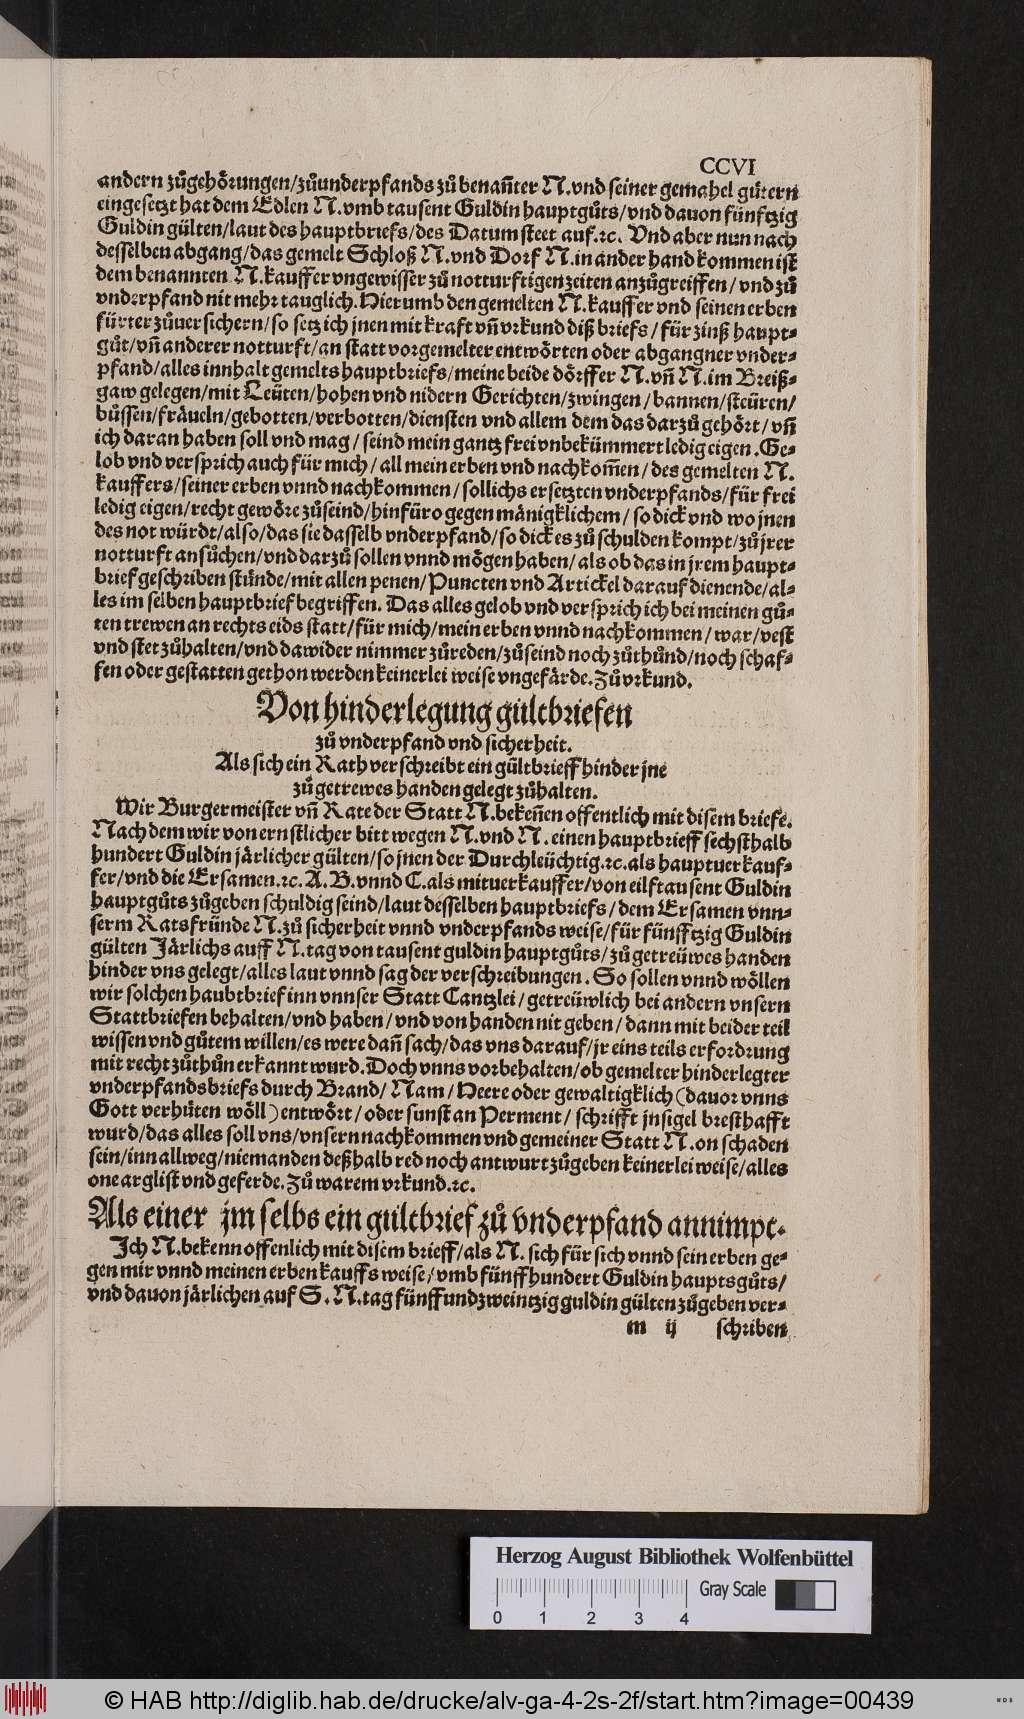 CCVI
andern zůgehörungen/zůunderpfands zů benañter N. vnd seiner gemahel gütern
eingesetzt hat dem Edlen N. vmb tausent Guldin hauptgůts/vnd dauon fünfftzig
Guldin gülten/laut des hauptbriefs/des Datum steet auf.ꝛc. Vnd aber nun nach
desselben abgang/das gemelt Schloß N. vnd Dorf N. in ander hand kommen ist
dem benannten N. kauffer vngewisser zů notturftigen zeiten anzůgreiffen/vnd zů
vnderpfand nit mehr tauglich. Hierumb den gemelten N. kauffer vnd seinen erben
fürter zůuersichern/so setz ich jnen mit kraft vñ vrkund diß briefs/für zinß haupt-
gůt/vñ anderer notturft/an statt vorgemelter entwörten oder abgangner vnder-
pfand/alles innhalt gemelts hauptbriefs/meine beide dörffer N. vñ N. im Breiß-
gaw gelegen/mit Leüten/hohen vnd nidern Gerichten/zwingen/bannen/steüren/
bůssen/fräueln/gebotten/verbotten/diensten vnd allem dem das darzů gehört/vñ
ich daran haben soll vnd mag/seind mein gantz frei vnbekümmert ledig eigen. Ge-
lob vnd versprich auch für mich/all mein erben vnd nachkom̃en/des gemelten N.
kauffers/seiner erben vnnd nachkommen/sollichs ersetzten vnderpfands/für frei
ledig eigen/recht gewöre zůseind/hinfüro gegen mänigklichem/so dick vnd wo jnen
des not würdt/also/das sie dasselb vnderpfand/so dick es zů schulden kompt/zů jrer
notturft ansůchen/vnd darzů sollen vnnd mögen haben/als ob das in jrem haupt-
brief geschriben stünde/mit allen penen/Puncten vnd Artickel darauf dienende/al-
les im selben hauptbrief begriffen. Das alles gelob vnd versprich ich bei meinen gů-
ten trewen an rechts eids statt/für mich/mein erben vnnd nachkommen/war/vest
vnd stet zůhalten/vnd dawider nimmer zůreden/zůseind noch zůthůnd/noch schaf-
fen oder gestatten gethon werden keinerlei weise vngefärde. Zů vrkund.
Von hinderlegung gültbriefen
zů vnderpfand vnd sicherheit.
Als sich ein Rath verschreibt ein gültbrieff hinder jne
zů getrewes handen gelegt zůhalten.
Wir Burgermeister vñ Rate der Statt N. bekeñen offentlich mit disem briefe.
Nach dem wir von ernstlicher bitt wegen N. vnd N. einen hauptbrieff sechsthalb
hundert Guldin järlicher gülten/so jnen der Durchleüchtig.ꝛc. als hauptuerkauf-
fer/vnd die Ersamen.ꝛc. A. B. vnnd C. als mituerkauffer/von eilftausent Guldin
hauptgůts zůgeben schuldig seind/laut desselben hauptbriefs/dem Ersamen vnn-
serm Ratsfründe N. zů sicherheit vnnd vnderpfands weise/für fünfftzig Guldin
gülten Järlichs auff N. tag von tausent guldin hauptgůts/zů getreüwes handen
hinder vns gelegt/alles laut vnnd sag der verschreibungen. So sollen vnnd wöllen
wir solchen haubtbrief inn vnnser Statt Cantzlei/getreüwlich bei andern vnsern
Stattbriefen behalten/vnd haben/vnd von handen nit geben/dann mit beider teil
wissen vnd gůtem willen/es were dañ sach/das vns darauf/jr eins teils erfordrung
mit recht zůthůn erkannt wurd. Doch vnns vorbehalten/ob gemelter hinderlegter
vnderpfandsbriefs durch Brand/Nam/Heere oder gewaltigklich (dauor vnns
Gott verhüten wöll) entwört/oder sunst an Perment/schrifft jnsigel bresthafft
wurd/das alles soll vns/vnsern nachkommen vnd gemeiner Statt N. on schaden
sein/inn allweg/niemanden deßhalb red noch antwurt zůgeben keinerlei weise/alles
one arglist vnd geferde. Zů warem vrkund.ꝛc.
Als einer jm selbs ein gültbrief zů vnderpfand annimpt.
Ich N. bekenn offenlich mit disem brieff/als N. sich für sich vnnd sein erben ge-
gen mir vnnd meinen erben kauffs weise/vmb fünffhundert Guldin hauptsgůts/
vnd dauon järlichen auf S. N. tag fünffundzweintzig guldin gülten zůgeben ver-
m ij schriben
Herzog August Bibliothek Wolfenbüttel
Gray Scale
0 1 2 3 4
© HAB http://diglib.hab.de/drucke/alv-ga-4-2s-2f/start.htm?image=00439